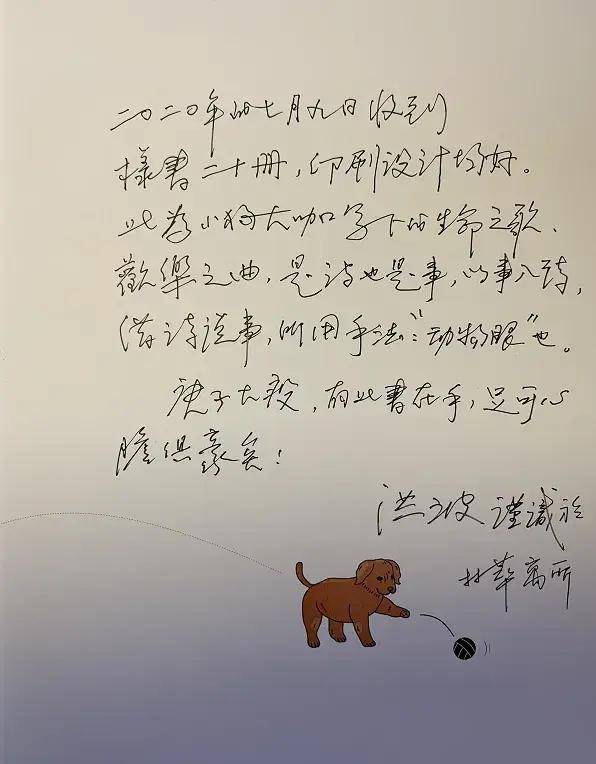 二〇二〇年的七月九日收到
樣書二十冊，印刷设计均好。
此为小狗大咖写下的生命之歌、
歡樂之曲，是诗也是事，以事入诗，
借诗说事，所用手法：“动物眼”也。
庚子大疫，有此書在手，足可心
膽俱豪矣！
洪波 謹識於
林萃寓所